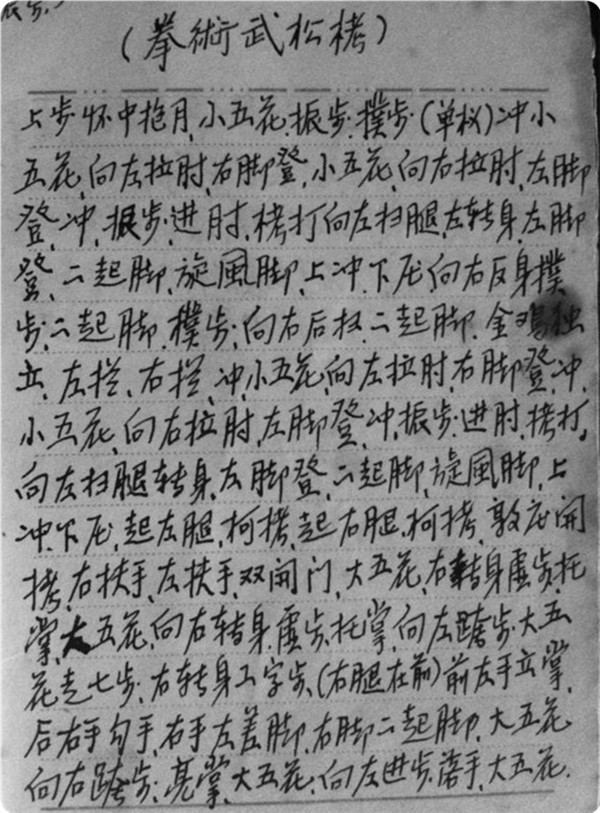 (拳術武松栲)
上步怀中抱月、小五花、振步、撲步(单杈)冲小
五花、向左拉肘、右脚登、小五花、向右拉肘、左脚
登、冲、振步、进肘、栲打向左扫腿、左转身、左脚
登、二起脚、旋風脚、上冲下压、向右反身撲
步、二起脚、撲步、向右后杈、二起脚、金鸡独
立、左拦、右拦、冲、小五花、向左拉肘、右脚登、冲、
小五花、向右拉肘、左脚登、冲、振步、进肘、拷打、
向左扫腿、转身、左脚登、二起脚、旋風脚、上
冲、下压、起左腿、柯拷、起右腿、柯拷、敦庄開
拷、右扶手、左扶手、双開门、大五花、右转身虚步托
掌、大五花、向右转身、虚步、托掌、向左跨步、大五
花走七步、右转身工字步、(右腿在前)前左手立掌、
后右手勾手、右手左差脚、右脚二起脚、大五花
向右跨步、亮掌、大五花、向左进步落手、大五花.